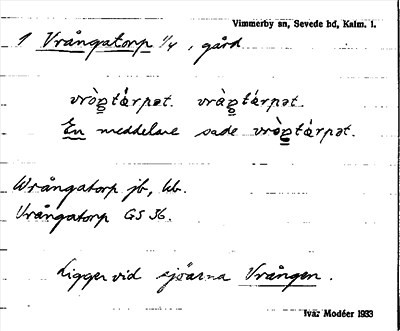 Vimmerby sn, Sevede hd, Kalm. l.
1 Vrångatorp 1/4, gård
vròp̲tárpət. vràp̲tárpət.
En meddelare sade vròp̲tárpət.
Wrångatorp jb, kb.
Vrångatorp GS 36.
Ligger vid sjöarna Vrången.
Ivar Modéer 1933